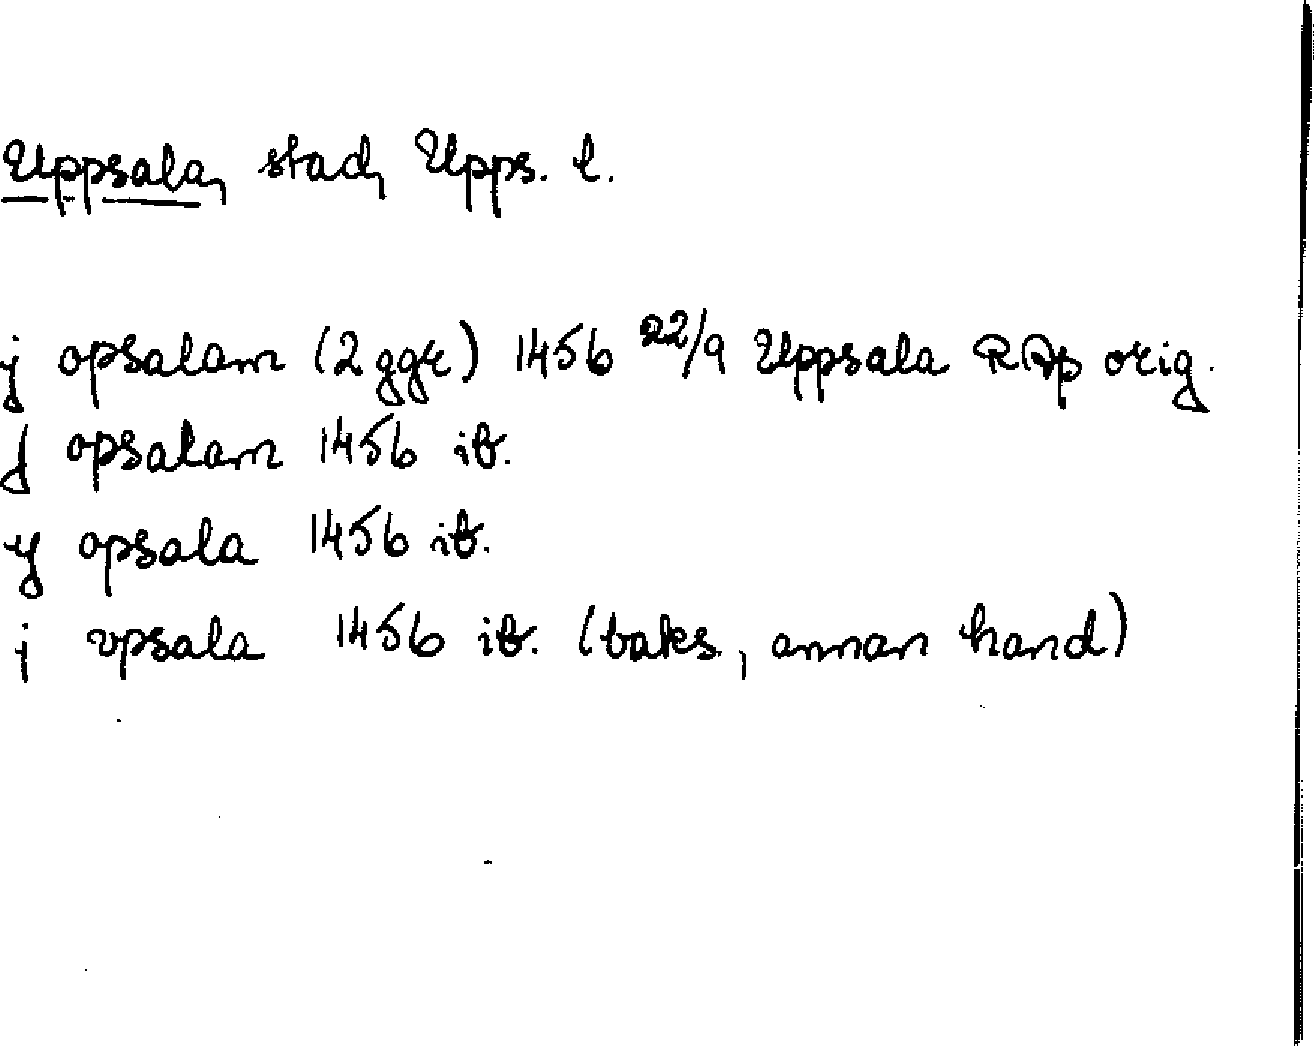 Uppsala, stad, Upps. l.
j opsalam (2 ggr) 1456 22/9 Uppsala RAp orig.
J opsalam 1456 ib.
y opsala 1456 ib.
j vpsala 1456 ib. (baks., annan hand)